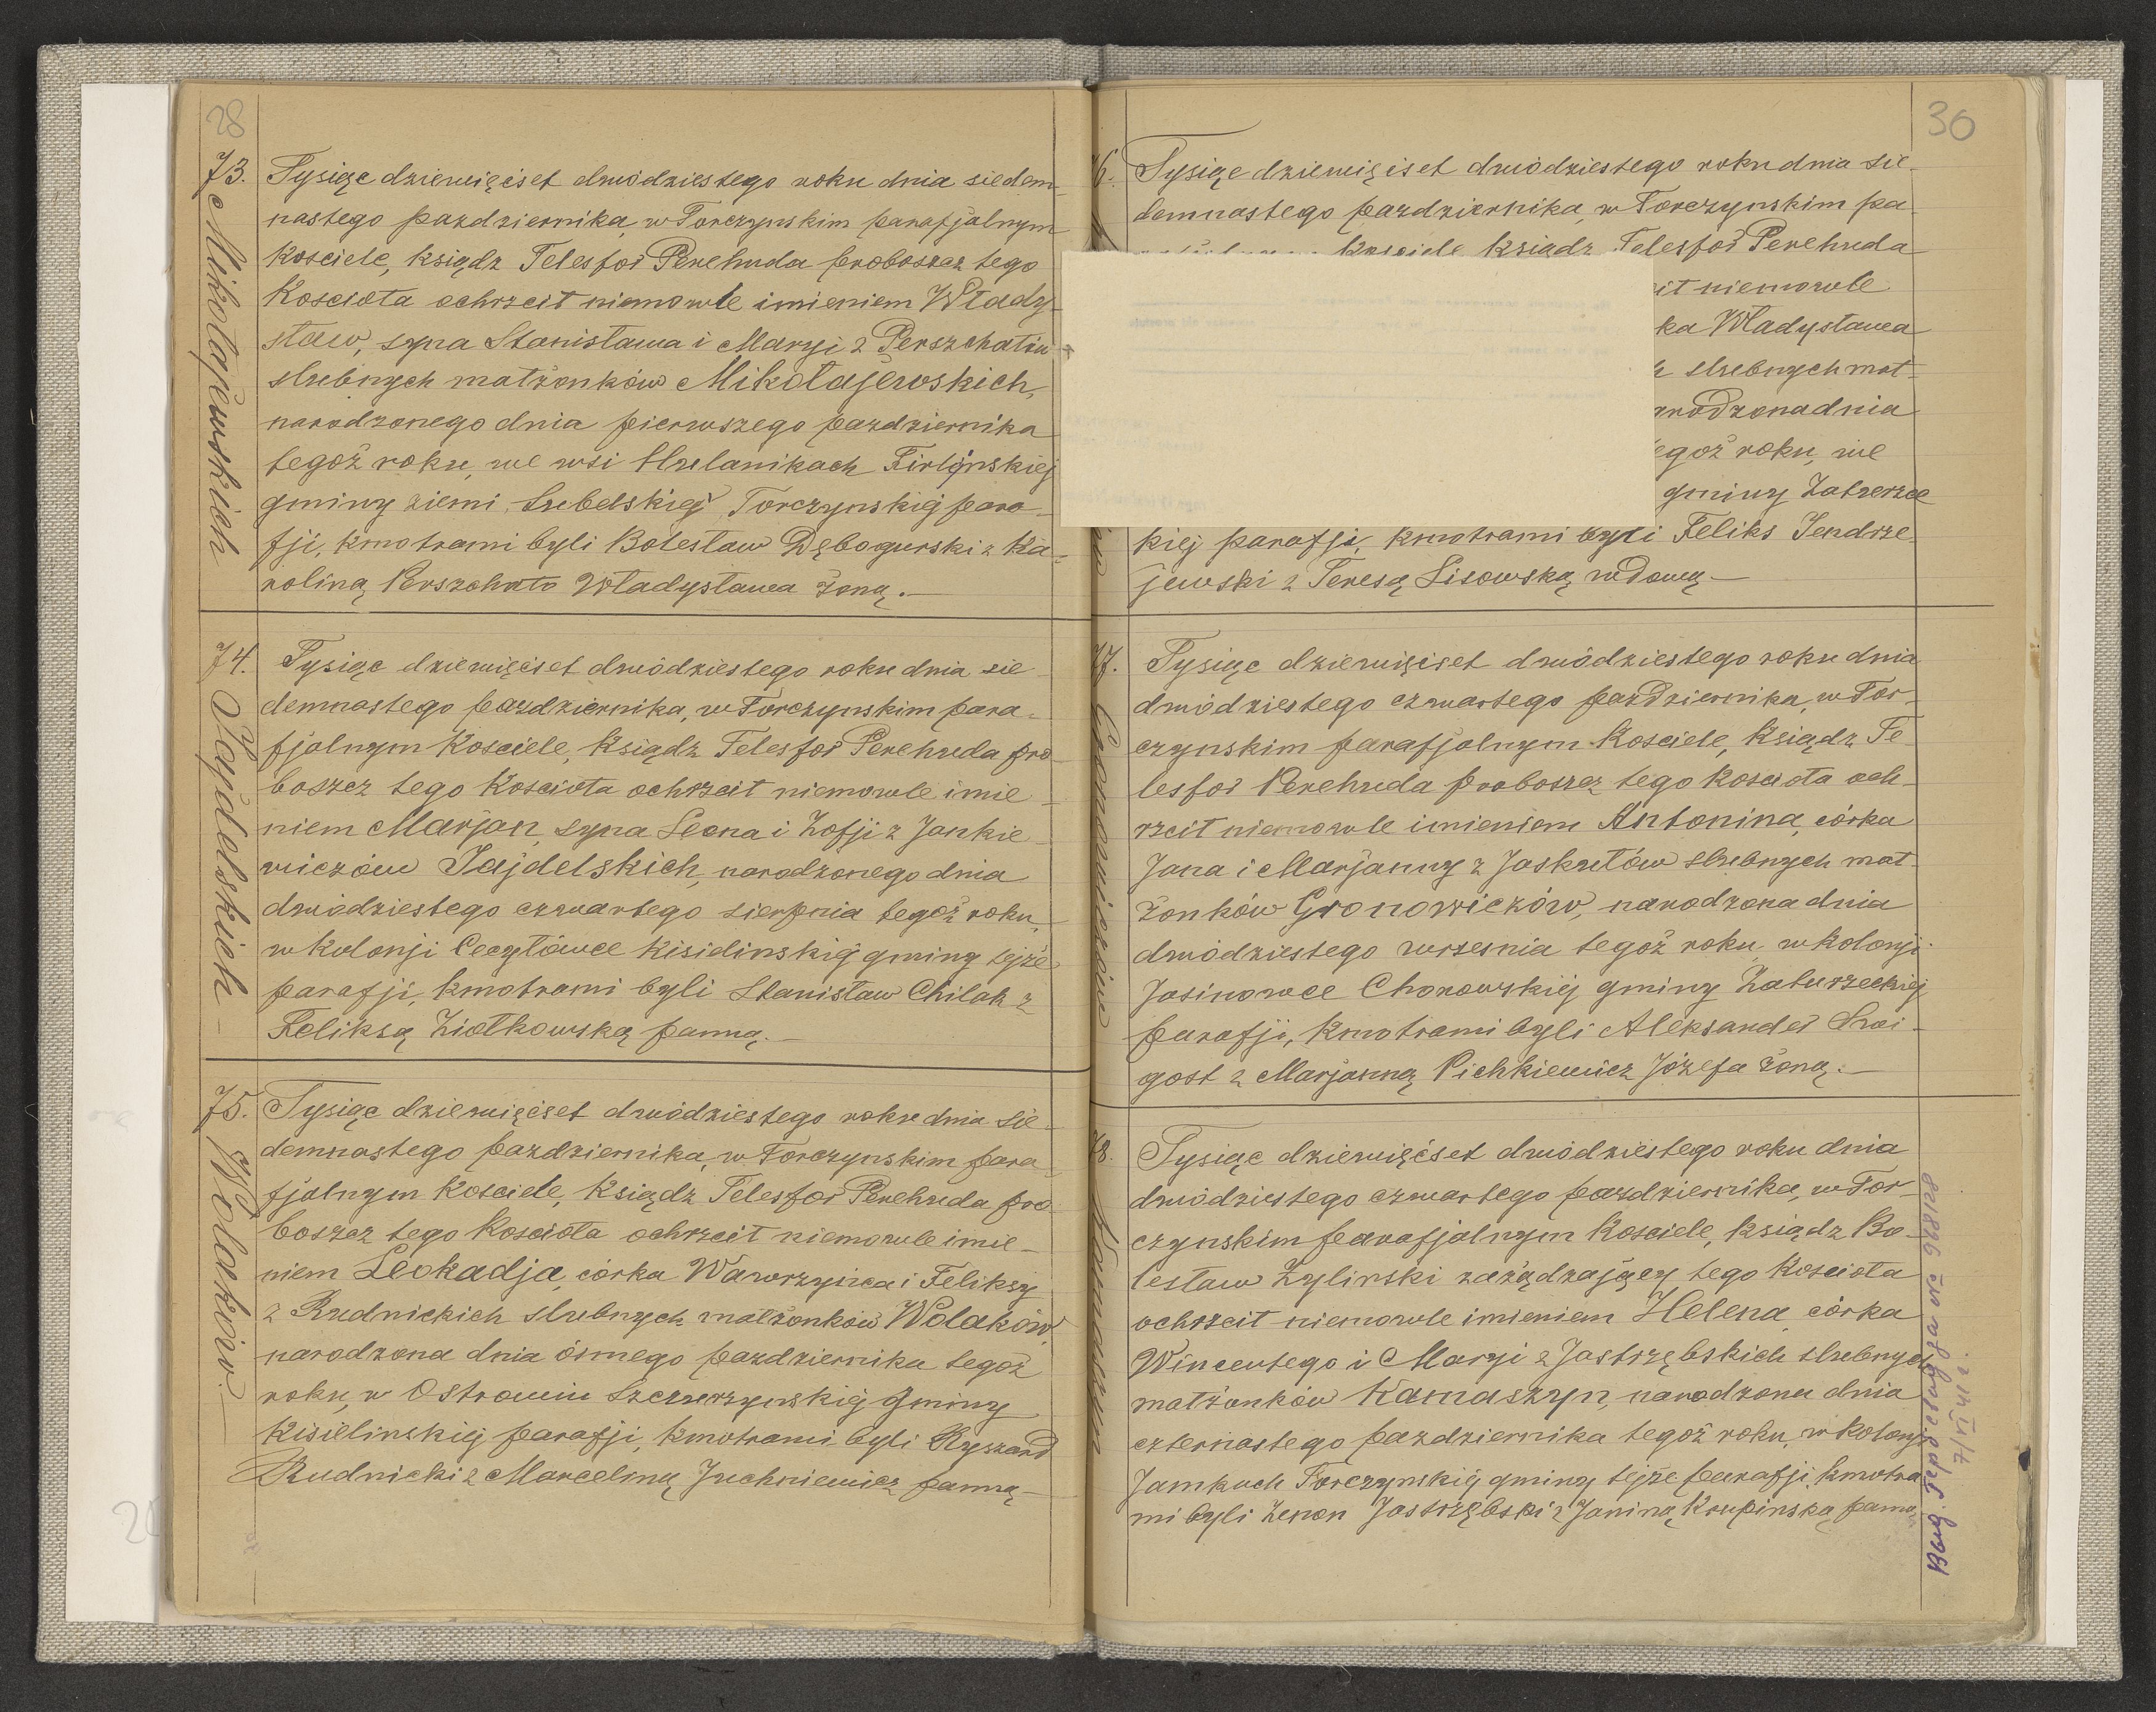 28
73.
Mikołajewskich
Tysiąc dziewięćset dwódziestego roku dnia siedem-
nastego pazdziernika, w Torczynskim parafjalnym
Kosciele, ksiądz Telesfor Perehuda proboszcz tego
Koscioła ochrzcił niemowle imieniem Włady-
sław, syna Stanisława i Maryi z
slubnych małżonków Mikołajewskich,
narodzonego dnia pierwszego pazdziernika
tegoż roku, we wsi
gminy ziemi Torczynskiej para-
fji, kmotrami byli Bolesław Dębogurski z Ka-
roliną Władysława żoną.—
74.
Sajdelskich
Tysiąc dziewięćset dwódziestego roku dnia sie-
demnastego pazdziernika, w Torczynskim para-
fjalnym Kosciele, Ksiądz Telesfor Perehuda pro-
boszcz tego Koscioła ochrzcił niemowle imie-
niem Marjan, syna Leona i Zofji z Jankie-
wiczów Sajdelskich, narodzonego dnia
dwódziestego czwartego sierpnia tegoż roku,
w kolonji Cecylówce gminy tejże
parafji, kmotrami byli Stanisław Chilak z
Feliksą Ziołkowską panną.—
75.
Wolaków.
Tysiąc dziewięćset dwódziestego roku dnia sie-
demnastego pazdziernika, w Torczynskim para-
fjalnym Kosciele, Ksiądz Telesfor Perehuda pro-
boszcz tego Kosciola ochrzcił niemowle imie-
niem Leokadja, córka Wawrzyńca i Feliksy
z Rudnickich slubnych małżonków Wolaków,
narodzona dnia ósmego pazdziernika tegoż
roku, w gminy
Kisielinskiej parafji, kmotrami byli Ryszard
Rudnicki z Marceliną Juchniewicz panną—
30
6.
Tysiąc dziewięćset dwódziestego roku dnia sie-
demnastego pazdziernika, w Torczynskim pa-
Kosciele, ksiądz Telesfor Perehuda
it niemowle
ka Władysława
slubnych mał-
narodzona dnia
egoż roku, we
gminy
kiej parafji, kmotrami byli Feliks Jendrze-
jewski z Teresą Lisowską wdową.—
7.
Gronowiczów
Tysiąc dziewięćset dwódziestego roku dnia
dwódziestego czwartego pazdziernika, w Tor-
czynskim parafjalnym Kosciele, Ksiądz Te-
lesfor Perehuda proboszcz tego Kosciola och-
rzcił niemowle imieniem Antonina, córka
Jana i Marjanny z Jaskułów slubnych mał-
żonków Gronowiczów, narodzona dnia
dwódziestego wrzesnia tegoż roku, w kolonji
Jasinowce Chorowskiej gminy Zaturzeckiej
parafji, kmotrami byli Aleksander Swi-
gost z Marjanną Pichkiewicz Józefa żoną.—
8.
Kamaszyn
Tysiąc dziewięćset dwódziestego roku dnia
dwódziestego czwartego pazdziernika, w Tor-
czynskim parafjalnym Kosciele, ksiądz Bo-
lesław Zylinski zażądzający tego Kosciola
ochrzcił niemowle imieniem Helena, córka
Wincentego i Maryi z Jastrzębskich slubnych
małżonków Kamaszyn, narodzona dnia
czternastego pazdziernika tegoż roku, w kolonji
Jamkach Torczynskiej gminy tejże parafji, kmotra-
mi byli Zenon Jastrzębski z Janiną Krupinską panną